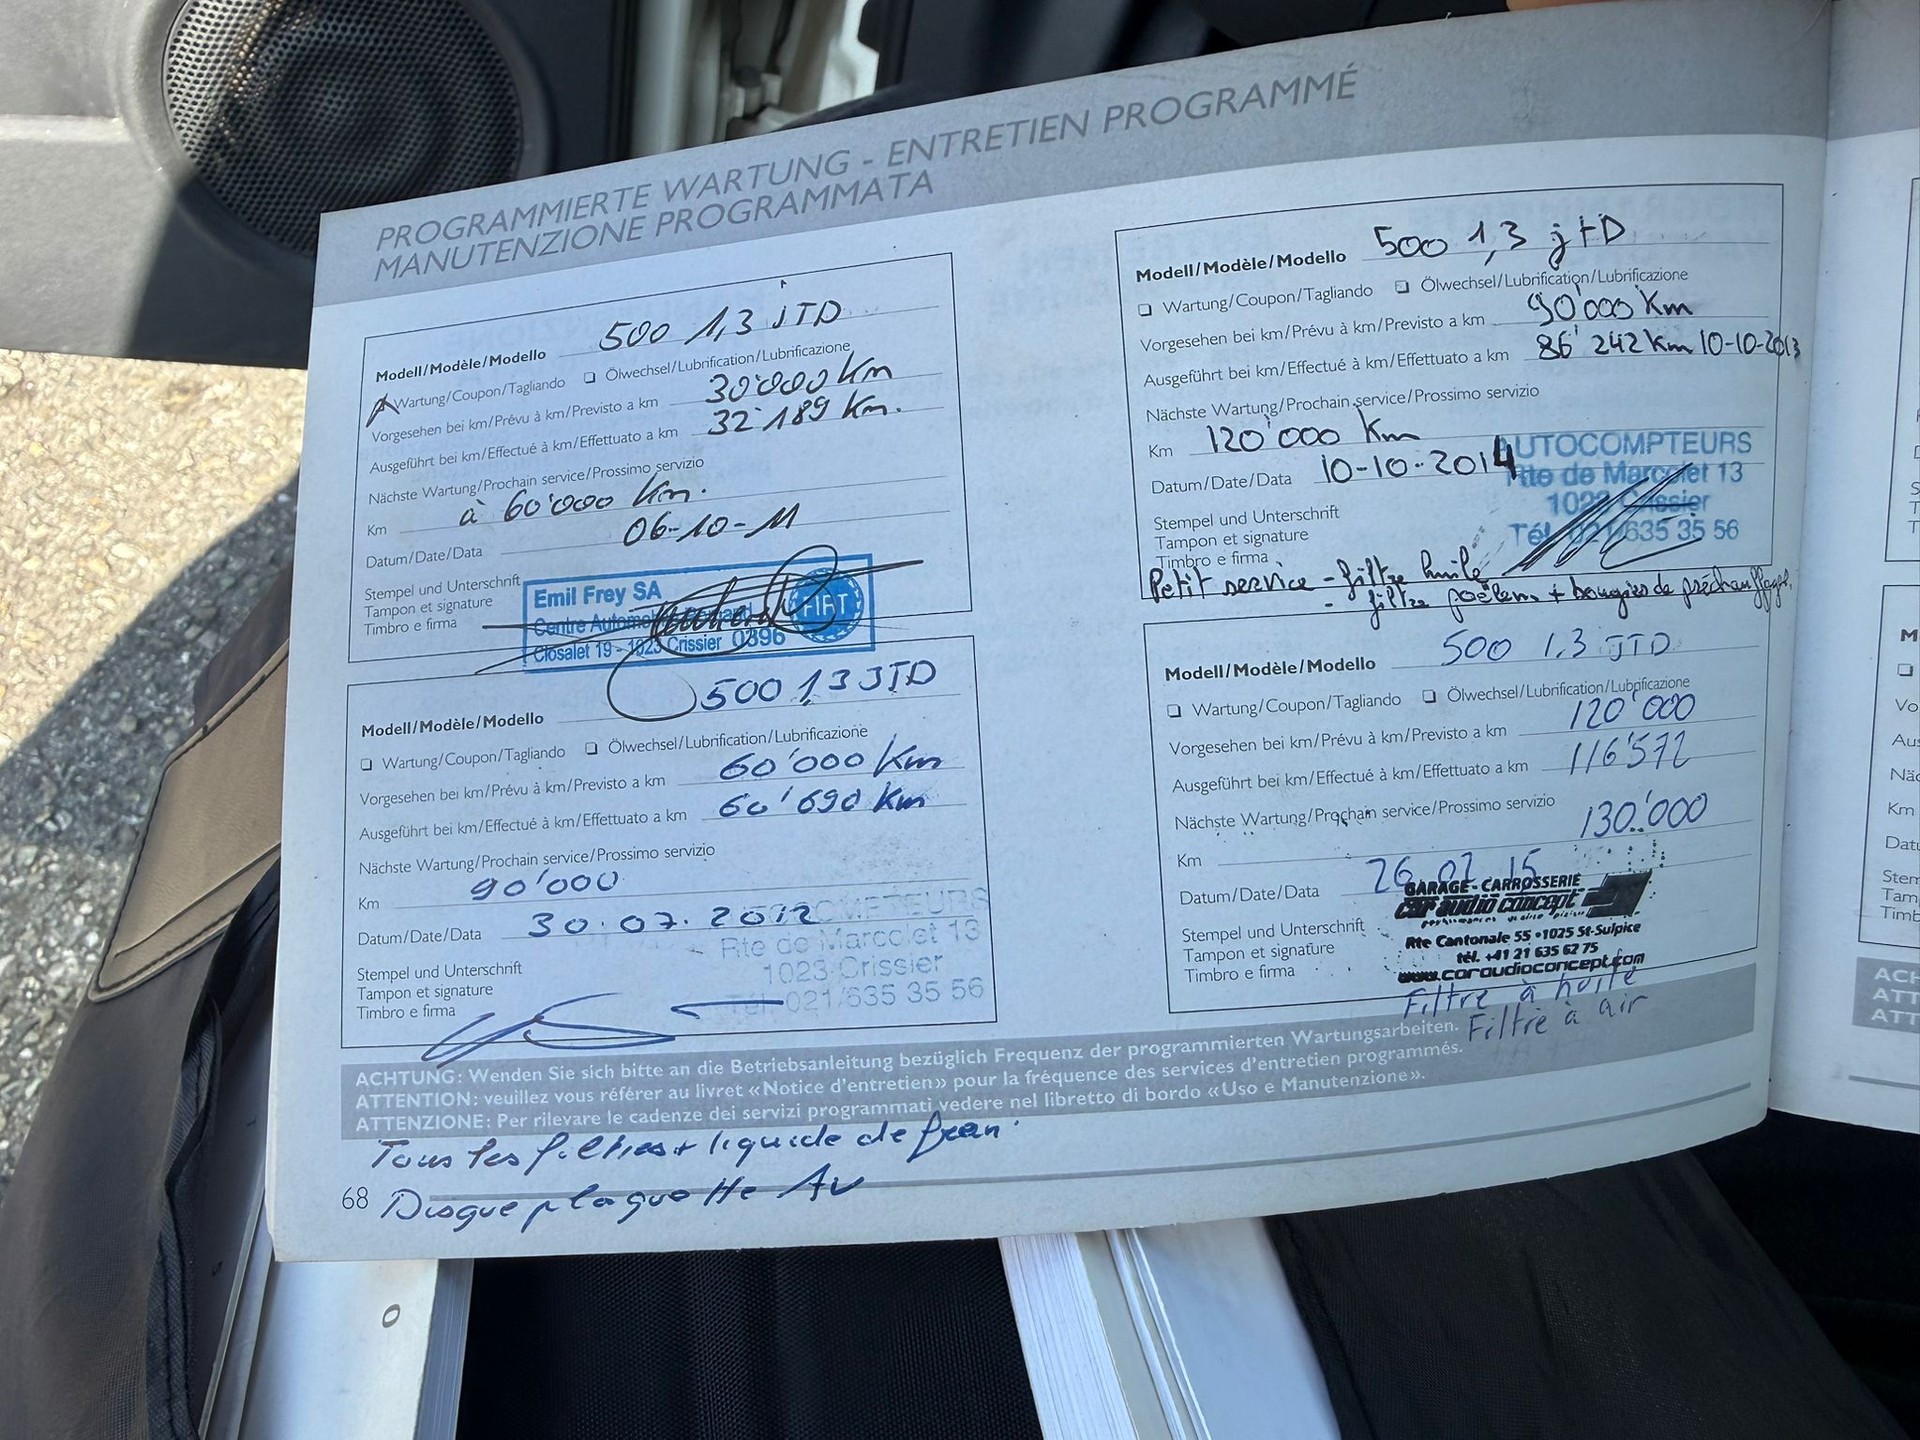 PROGRAMMIERTE WARTUNG - ENTRETIEN PROGRAMMÉ
MANUTENZIONE PROGRAMMATA
Modell/Modèle/Modello 500 1,3 JTD
Wartung/Coupon/Tagliando Ölwechsel/Lubrification/Lubrificazione
Vorgesehen bei km/Prévu à km/Previsto a km 30'000 Km
Ausgeführt bei km/Effectué à km/Effettuato a km 32'189 Km.
Nächste Wartung/Prochain service/Prossimo servizio
Km à 60'000 Km.
Datum/Date/Data 06-10-11
Stempel und Unterschrift
Tampon et signature
Timbro e firma
Emil Frey SA
Centre Automobile Romand
Closalet 19 - 1023 Crissier 0396
FIAT
Modell/Modèle/Modello 500 1,3 JTD
Wartung/Coupon/Tagliando Ölwechsel/Lubrification/Lubrificazione
Vorgesehen bei km/Prévu à km/Previsto a km 60'000 Km
Ausgeführt bei km/Effectué à km/Effettuato a km 60'690 Km
Nächste Wartung/Prochain service/Prossimo servizio
Km 90'000
Datum/Date/Data 30.07.2012
Stempel und Unterschrift
Tampon et signature
Timbro e firma
AUTOCOMPTEURS
Rte de Marcolet 13
1023 Crissier
Tél. 021/635 35 56
Modell/Modèle/Modello 500 1,3 jtD
Wartung/Coupon/Tagliando Ölwechsel/Lubrification/Lubrificazione
Vorgesehen bei km/Prévu à km/Previsto a km 90'000 Km
Ausgeführt bei km/Effectué à km/Effettuato a km 86'242 Km 10-10-2013
Nächste Wartung/Prochain service/Prossimo servizio
Km 120'000 Km
Datum/Date/Data 10-10-2014
Stempel und Unterschrift
Tampon et signature
Timbro e firma
AUTOCOMPTEURS
Rte de Marcolet 13
1023 Crissier
Tél. 021/635 35 56
Petit service - filtre huile
- filtre poëlens + bougies de préchauffage.
Modell/Modèle/Modello 500 1.3 JTD
Wartung/Coupon/Tagliando Ölwechsel/Lubrification/Lubrificazione
Vorgesehen bei km/Prévu à km/Previsto a km 120'000
Ausgeführt bei km/Effectué à km/Effettuato a km 116'572
Nächste Wartung/Prochain service/Prossimo servizio
Km 130'000
Datum/Date/Data 26.02.15
Stempel und Unterschrift
Tampon et signature
Timbro e firma
GARAGE - CARROSSERIE
car audio concept
Rte Cantonale 55 • 1025 St-Sulpice
tél. +41 21 635 62 75
www.caraudioconcept.com
Filtre à huile
Filtre à air
ACHTUNG: Wenden Sie sich bitte an die Betriebsanleitung bezüglich Frequenz der programmierten Wartungsarbeiten.
ATTENTION: veuillez vous référer au livret «Notice d'entretien» pour la fréquence des services d'entretien programmés.
ATTENZIONE: Per rilevare le cadenze dei servizi programmati vedere nel libretto di bordo «Uso e Manutenzione».
Tous les filtres + liquide de frein
68 Disque plaquette Av